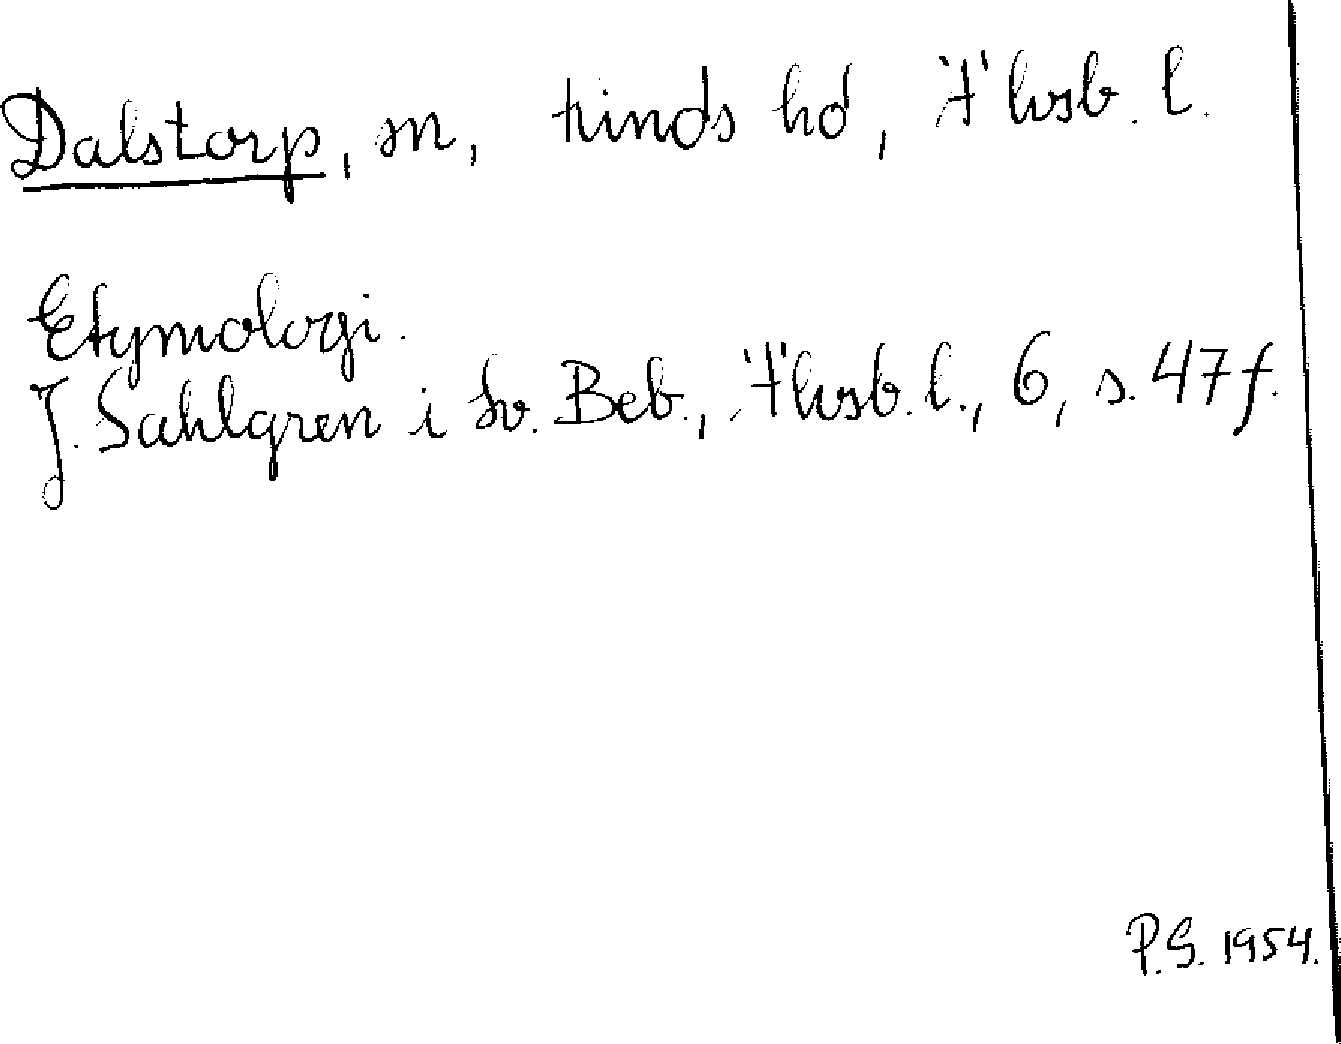 Dalstorp, sn, kinds hd, Älvsb. l.
Etymologi.
J. Sahlgren i Sv. Beb., Älvsb. l., 6, s. 47 f.
P.S. 1954.